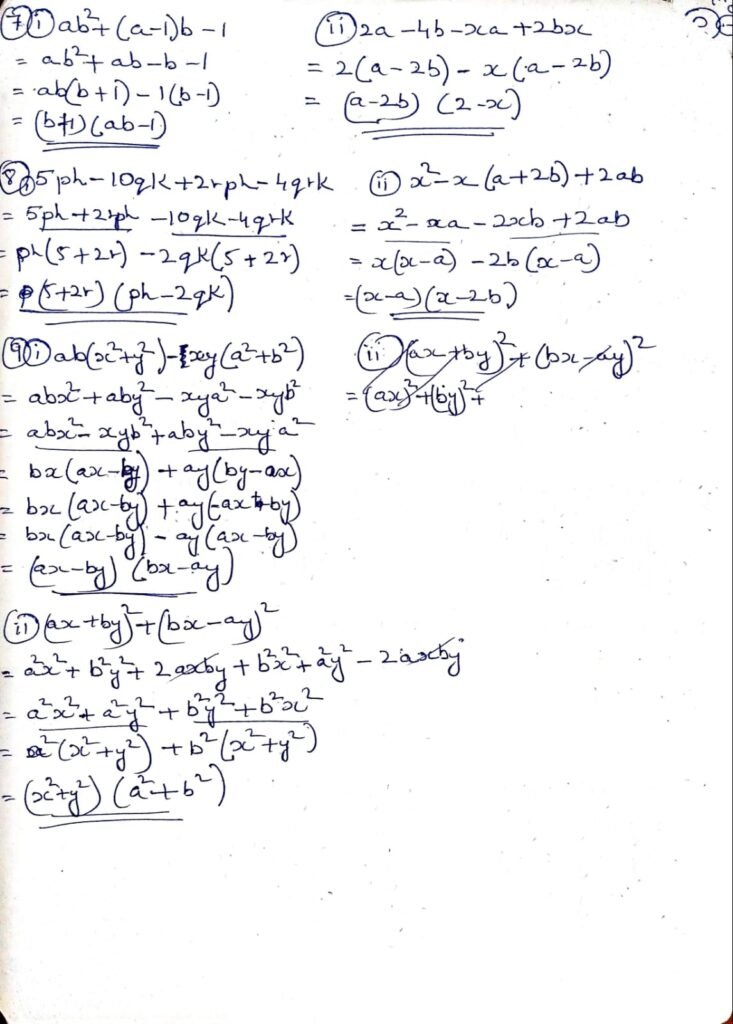 7 i ab²+(a-1)b-1
= ab²+ab-b-1
= ab(b+1)-1(b-1)
= (b+1)(ab-1)
ii 2a-4b-xa+2bx
= 2(a-2b)-x(a-2b)
= (a-2b) (2-x)
8 i 5ph-10qk+2rph-4qrk
= 5ph+2rph -10qk-4qrk
= ph(5+2r) -2qk(5+2r)
= (5+2r) (ph-2qk)
ii x²-x(a+2b)+2ab
= x²-xa-2xb+2ab
= x(x-a) -2b(x-a)
=(x-a)(x-2b)
9 i ab(x²+y²)-xy(a²+b²)
= abx²+aby²-xya²-xyb²
= abx²-xyb²+aby²-xya²
= bx(ax-by)+ay(by-ax)
= bx(ax-by)+ay(-ax+by)
= bx(ax-by)-ay(ax-by)
= (ax-by) (bx-ay)
ii (ax+by)²+(bx-ay)²
= (ax)²+(by)²+
ii (ax+by)²+(bx-ay)²
= a²x²+b²y²+2axby+b²x²+a²y²-2axby
= a²x²+a²y²+b²y²+b²x²
= a²(x²+y²)+b²(x²+y²)
= (x²+y²) (a²+b²)